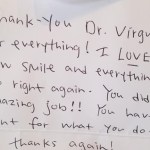 hank-you Dr. Virgu
r everything! I LOVE
w smile and everything
o right again. You did
azing job!! You have
nt for what you do
thanks again!